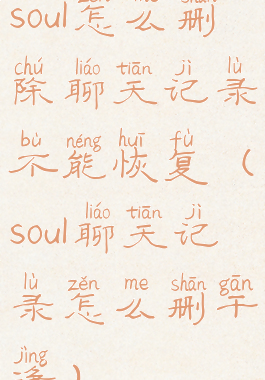 zěn me shān
soul怎么删
chú liáo tiān jì lù
除聊天记录
bù néng huī fù
不能恢复（
liáo tiān jì
soul聊天记
lù zěn me shān gān
录怎么删干
jìng
净）